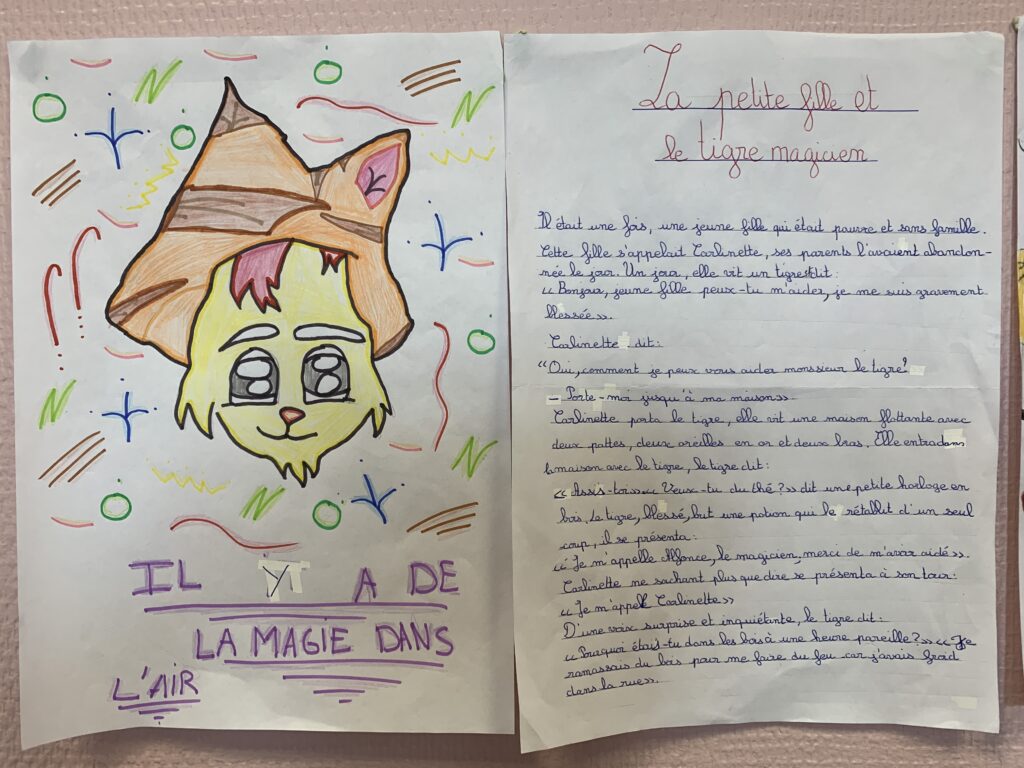 IL Y A DE
LA MAGIE DANS
L'AIR
La petite fille et
le tigre magicien
Il était une fois, une jeune fille qui était pauvre et sans famille.
Cette fille s'appelait Carlinette, ses parents l'avaient abandon-
née le jour. Un jour, elle vit un tigre dit:
« Bonjour, jeune fille peux-tu m'aider, je me suis gravement
blessée ».
Carlinette dit:
"Oui, comment je peux vous aider monssieur le tigre?
- Porte-moi jusqu'à ma maison»
Carlinette porta le tigre, elle vit une maison flottante avec
deux pattes, deux oreilles en or et deux bras. Elle entra dans
la maison avec le tigre, le tigre dit:
« Assis-toi» « Veux-tu du thé?» dit une petite horloge en
bois. Le tigre, blessé, but une potion qui le rétablit d'un seul
coup, il se présenta:
« Je m'appelle Alfonce, le magicien, merci de m'avoir aidé».
Carlinette ne sachant plus que dire se présenta à son tour:
« Je m'appel Carlinette»
D'une voix surprise et inquiétante, le tigre dit:
« Pourquoi étais-tu dans les bois à une heure pareille?» « Je
ramassais du bois pour me faire du feu car j'avais froid
dans la rue».